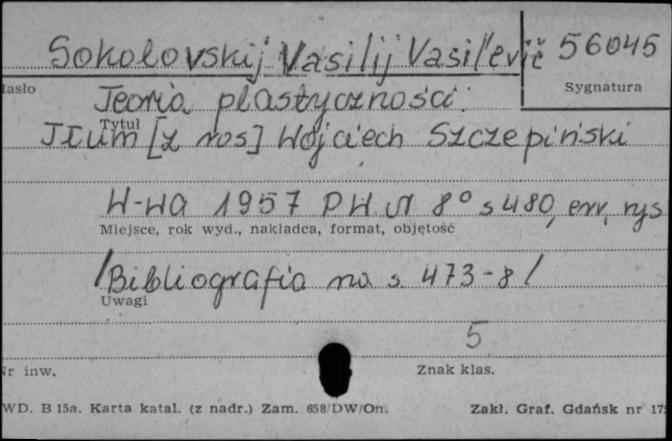 Sokołovskij Vasilij Vasil'evič 56045
Hasło Sygnatura
Teoria plastyczności.
Tytuł
Tłum [z ros] Wojciech Szczepiński
W-wa 1957 PWN 8° s 480, err, rys
Miejsce, rok wyd., nakładca, format, objętość
/Bibliografia na s 473-8/
Uwagi
5
Nr inw. Znak klas.
WD. B 15a. Karta katal. (z nadr.) Zam. 658/DW/On. Zakł. Graf. Gdańsk nr